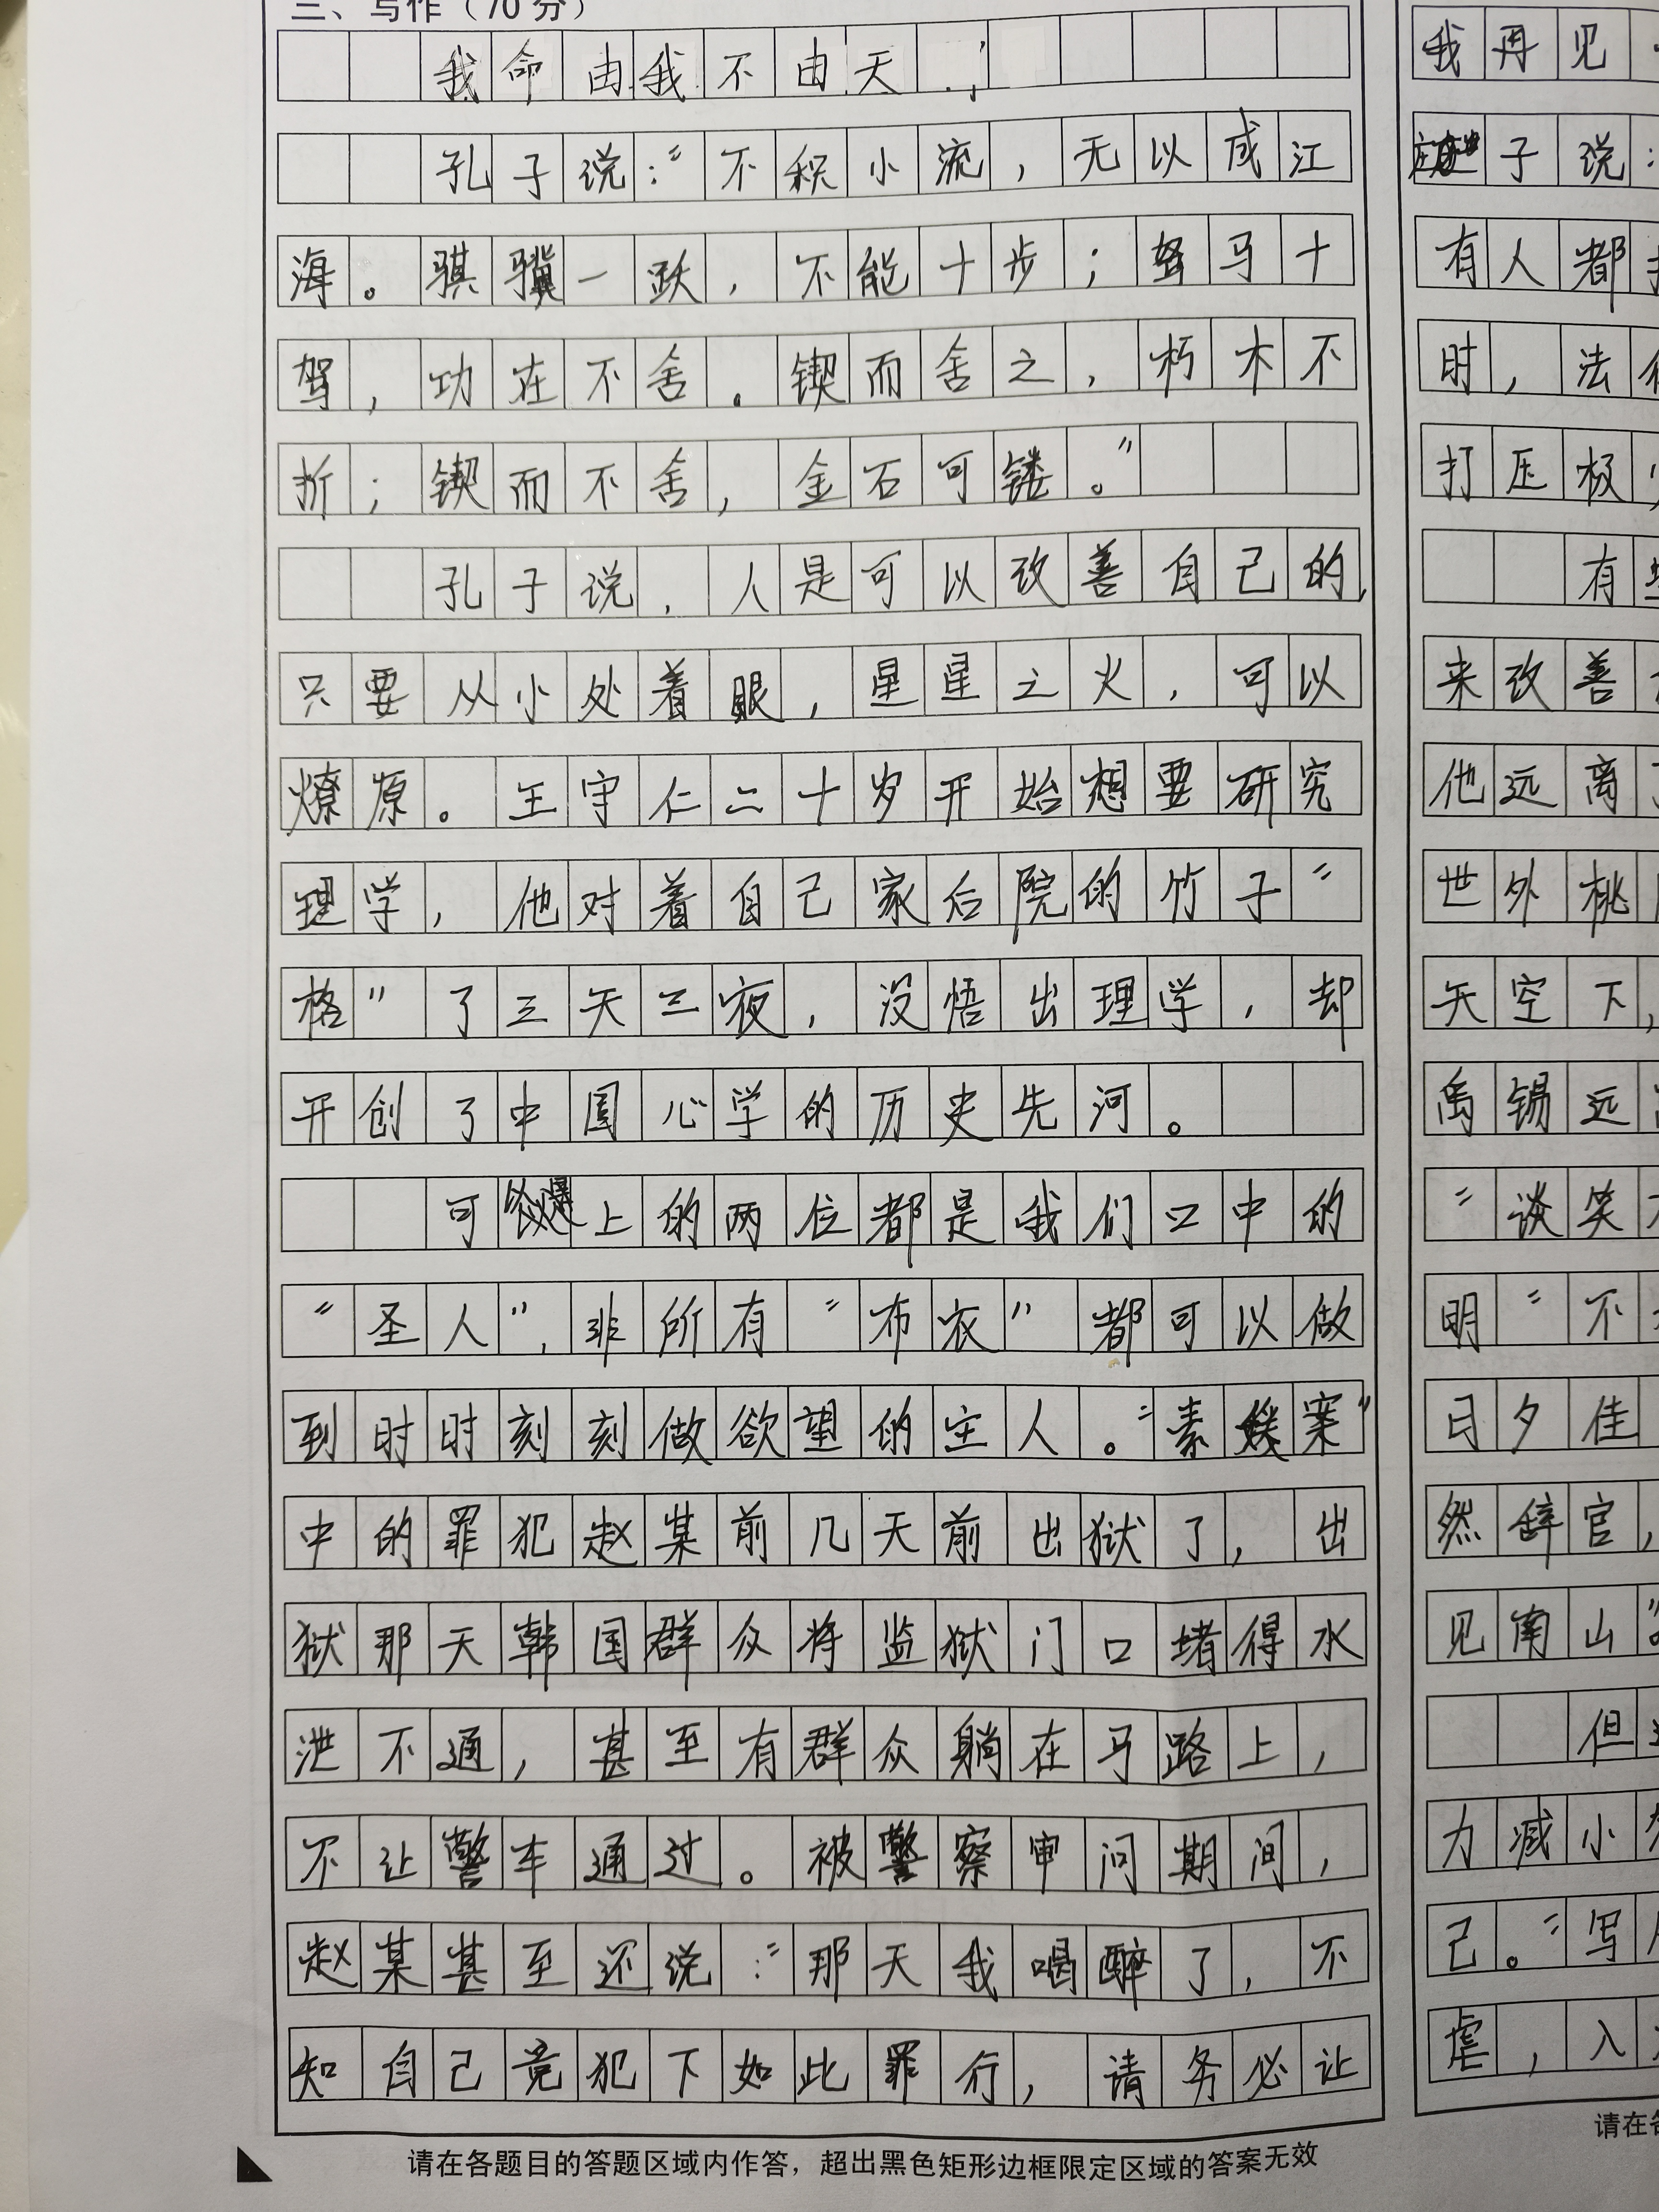 三、写作（70分）
我命由我不由天
孔子说：“不积小流，无以成江
海。骐骥一跃，不能十步；驽马十
驾，功在不舍。锲而舍之，朽木不
折；锲而不舍，金石可镂。”
孔子说，人是可以改善自己的，
只要从小处着眼，星星之火，可以
燎原。王守仁二十岁开始想要研究
理学，他对着自己家后院的竹子“
格”了三天三夜，没悟出理学，却
开创了中国心学的历史先河。
可 上的两位都是我们口中的
“圣人”，非所有“布衣”都可以做
到时时刻刻做欲望的主人。“素媛案”
中的罪犯赵某前几天前出狱了，出
狱那天韩国群众将监狱门口堵得水
泄不通，甚至有群众躺在马路上，
不让警车通过。被警察审问期间，
赵某甚至还说：“那天我喝醉了，不
知自己竟犯下如此罪行，请务必让
请在各题目的答题区域内作答，超出黑色矩形边框限定区域的答案无效
我再见
子说：
有人都
时，法
打压极
有
来改善
他远离
世外桃
天空下，
禹锡远
“谈笑
明“不
日夕佳
然辞官，
见南山”
但
力减小
己。“写
虐，入
请在各